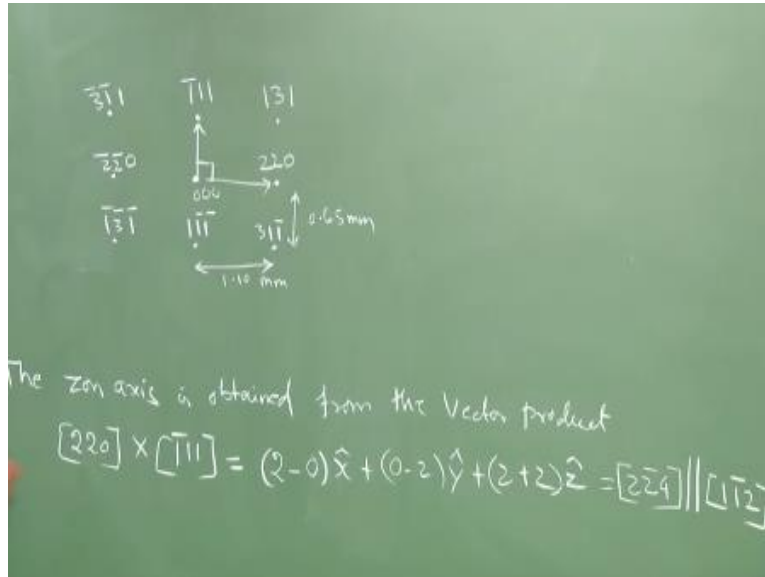 3̅1̅1 1̅11 131
2̅2̅0 000 220
1̅3̅1̅ 11̅1̅ 311̅
0.65mm
1.10 mm
The zon axis is obtained from the Vector product
[220] × [1̅11] = (2-0)x̂ + (0-2)ŷ + (2+2)ẑ = [22̅4] || [11̅2]